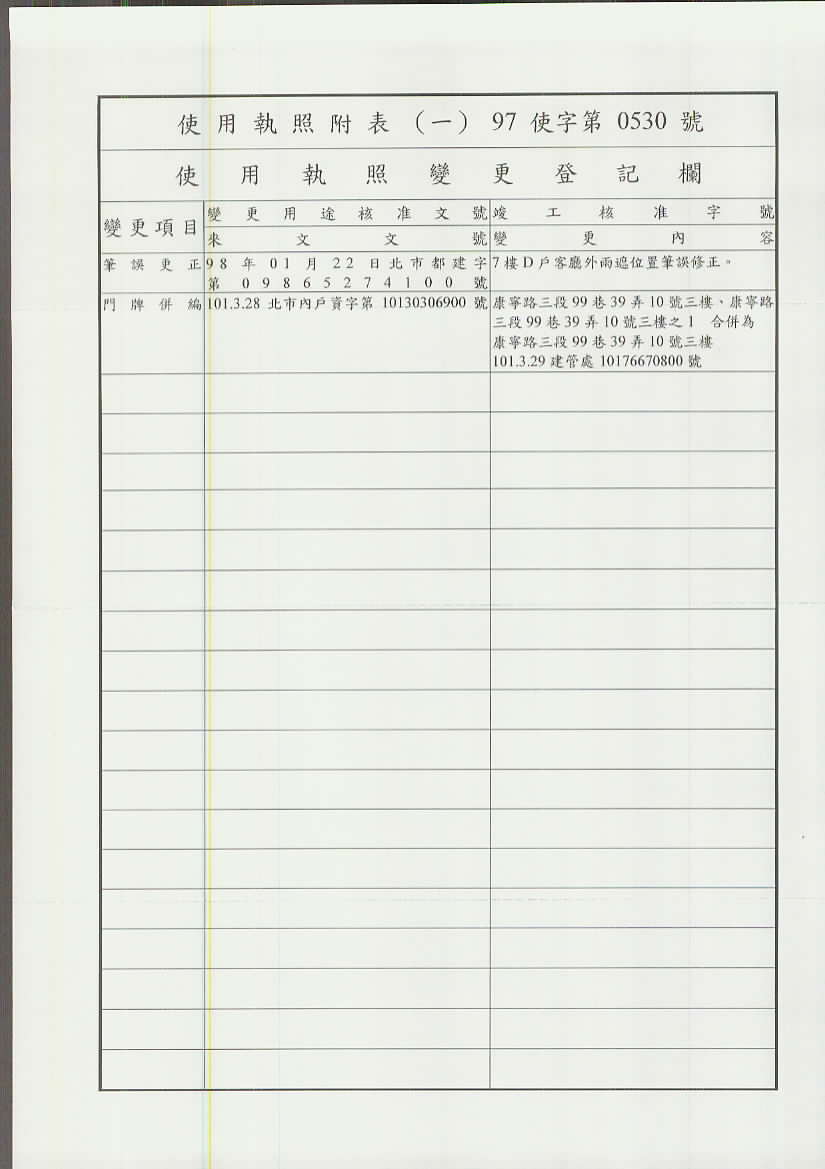 使用執照附表（一）97 使字第 0530 號
使用執照變更登記欄
變更項目 變更用途核准文號 竣工核准字號
來文文號 變更內容
筆誤更正 98年01月22日北市都建字 7樓D戶客廳外雨遮位置筆誤修正。
第09865274100號
門牌併編 101.3.28 北市內戶資字第 10130306900 號 康寧路三段99巷39弄10號三樓、康寧路
三段99巷39弄10號三樓之1　合併為
康寧路三段99巷39弄10號三樓
101.3.29 建管處 10176670800 號